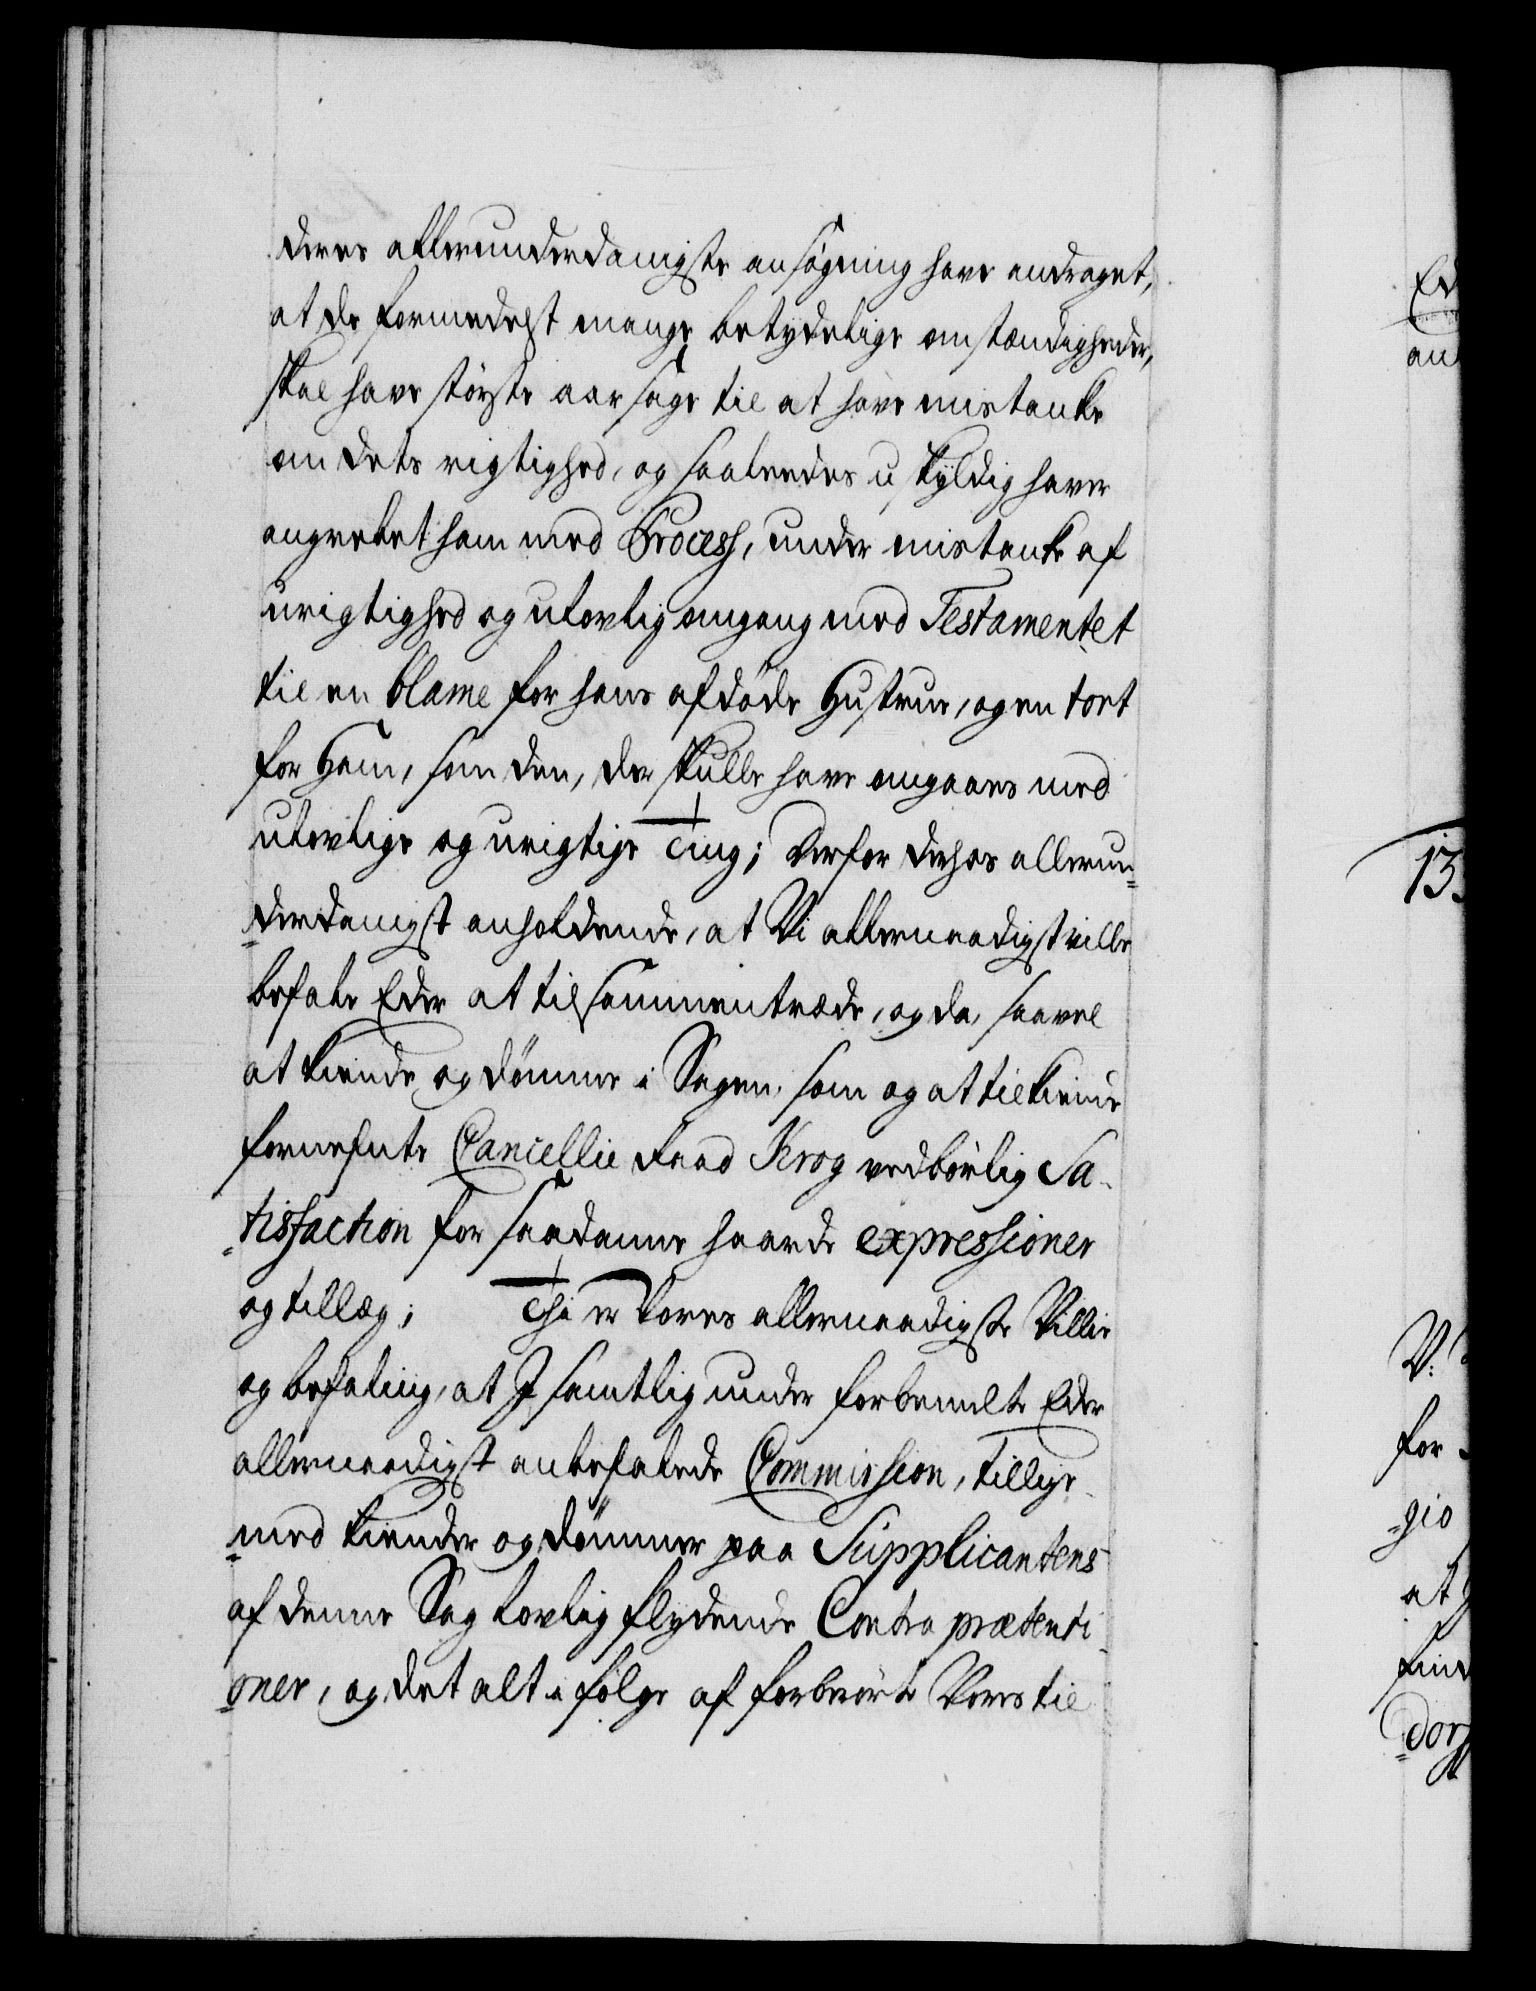 deres allerunderdanigste ansøgning have andraget,
at de formedelst mange betydelige omstændigheder,
skal have største aarsage til at have mistanke
om dets rigtighed, og saaledes uskyldig haver
angrebet ham med Process, under mistanke af
urigtighed og ulovlig omgang med Testamentet
til en blame for hans afdøde Hustrue, og en tort
for Ham, som den, der skulle have omgaaes med
ulovlige og urigtige Ting; Derfor derhos allerun-
-derdanigst anholdende, at Vi allernaadigst ville
befale Eder at tilsammentræde, og da, saavel
at kiende og dømme i Sagen, som og at tilkiende
fornefnte Cancellie Raad Krog vedbørlig Sa-
-tisfaction for saadanne haarde expressioner
og tillæg; Thi er Vores allernaadigste Villie
og befaling, at I samtlig under forbemelte Eder
allernaadigst anbefalede Commission, tillige-
-med kiender og dømmer paa Supplicantens
af denne Sag lovlig flydende Contra prætenti-
-oner, og det alt i følge af forberørte Vores til
Ed
an
13.
V.
for
-gio
at
find
-dorf